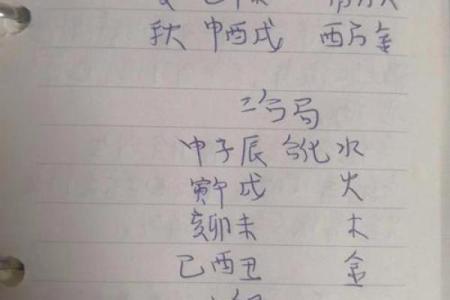 秋 申酉戌 西方金
三合局
申子辰 合化水
寅午戌 火
亥卯未 木
巳酉丑 金